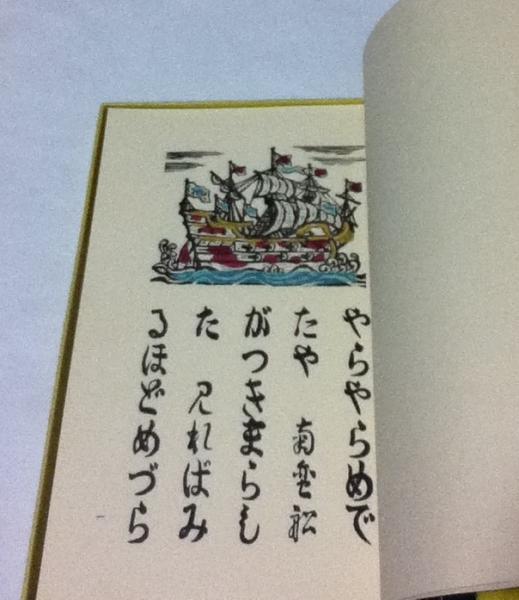 やらやらめで
たや 南蛮舩
がつきまらし
た 見ればみ
るほどめづら